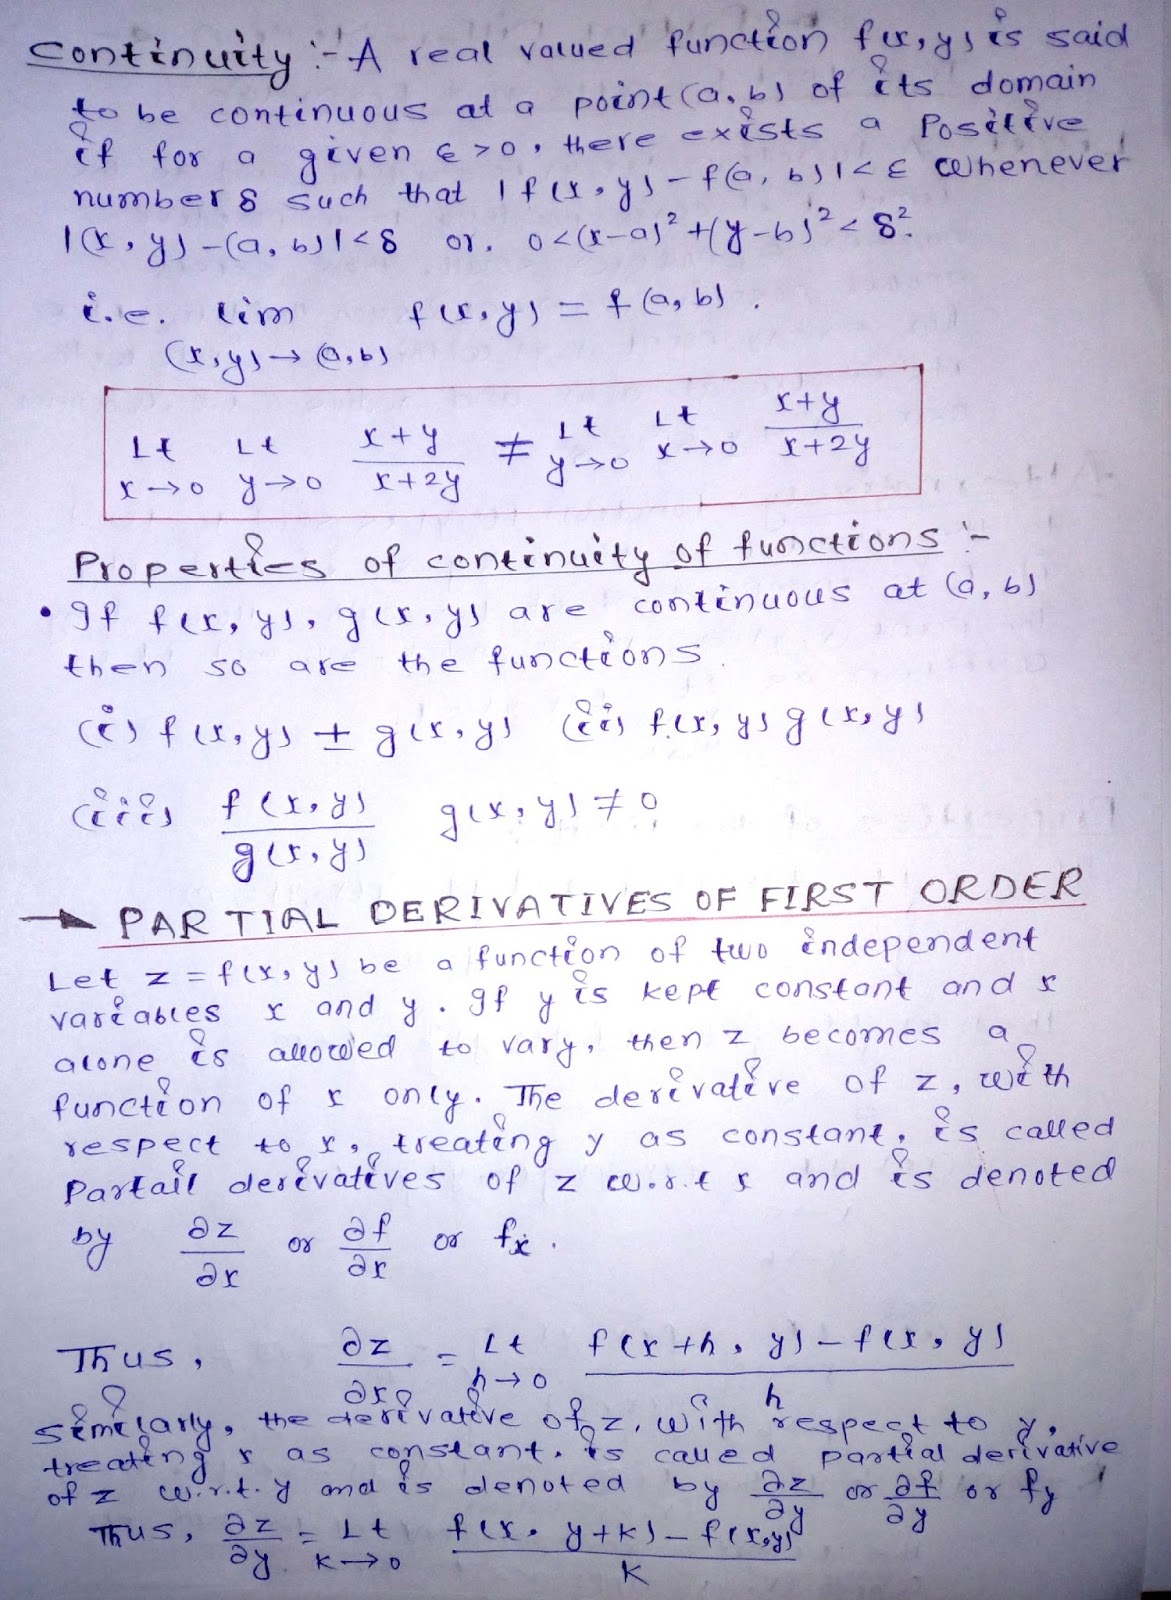 Continuity :- A real valued function f(x,y) is said
to be continuous at a point (a,b) of its domain
if for a given ε>0, there exists a Positive
number δ such that |f(x,y)-f(a,b)|<ε whenever
|(x,y)-(a,b)|<δ or, 0<(x-a)²+(y-b)²<δ².
i.e. lim f(x,y) = f(a,b).
(x,y)→(a,b)
Lt Lt x+y ≠ Lt Lt x+y
x→0 y→0 x+2y y→0 x→0 x+2y
Properties of continuity of functions :-
• If f(x,y), g(x,y) are continuous at (a,b)
then so are the functions.
(i) f(x,y) ± g(x,y) (ii) f(x,y) g(x,y)
(iii) f(x,y) g(x,y) ≠ 0
g(x,y)
→ PARTIAL DERIVATIVES OF FIRST ORDER
Let z = f(x,y) be a function of two independent
variables x and y. If y is kept constant and x
alone is allowed to vary, then z becomes a
function of x only. The derivative of z, with
respect to x, treating y as constant, is called
Partail derivatives of z w.r.t x and is denoted
by ∂z or ∂f or fx.
∂x ∂x
Thus, ∂z = Lt f(x+h, y)-f(x, y)
∂x h→0 h
Similarly, the derivative of z, with respect to y,
treating x as constant. is called partial derivative
of z w.r.t. y and is denoted by ∂z or ∂f or fy
∂y ∂y
Thus, ∂z = Lt f(x, y+k)-f(x,y)
∂y k→0 k